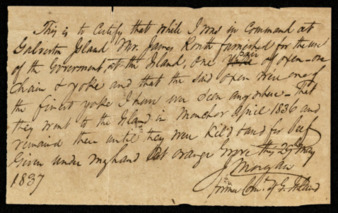 This is to Certify that while I was in Command at
Galveston Island Mr. James Routh furnished for the use
of the Government at the Island, one pair of oxen - one
Chain & yoke and that the said oxen were one of
the finest yoke I have ever seen any where - that
they went to the Island in March or April 1836 and
remained there until they were kill'd and for beef
Given under my hand at orange Grove this 29 May
1837
J Morgan
former Com. of G. Island